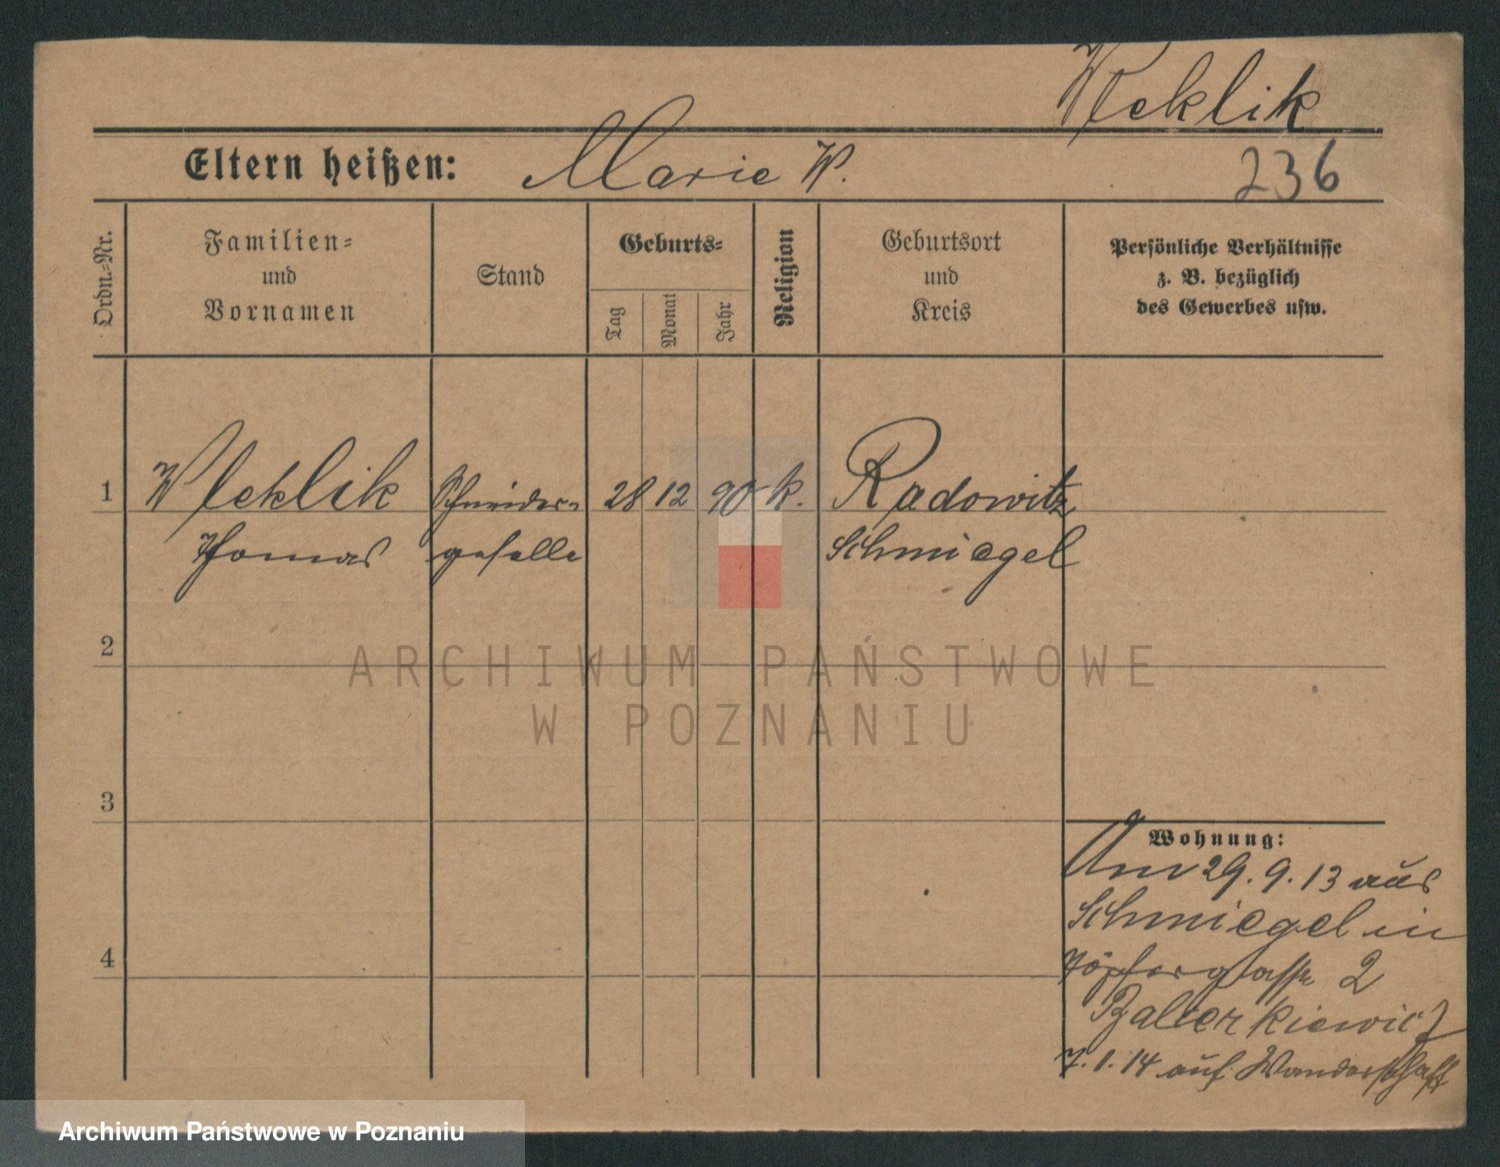 Weklik
Eltern heißen: Marie W.
236
Ordn.=Nr.
Familien=
und
Vornamen
Stand
Geburts=
Tag
Monat
Jahr
Religion
Geburtsort
und
Kreis
Persönliche Verhältnisse
z. B. bezüglich
des Gewerbes usw.
1 Weklik Schneider= 28 12 90 k. Radowitz
Thomas geselle Schmiegel
2
3
4
Wohnung:
Am 29.9.13 aus
Schmiegel in
Töpfergasse 2
7.1.14 auf Wanderschaft
ARCHIWUM PAŃSTWOWE
W POZNANIU
Archiwum Państwowe w Poznaniu